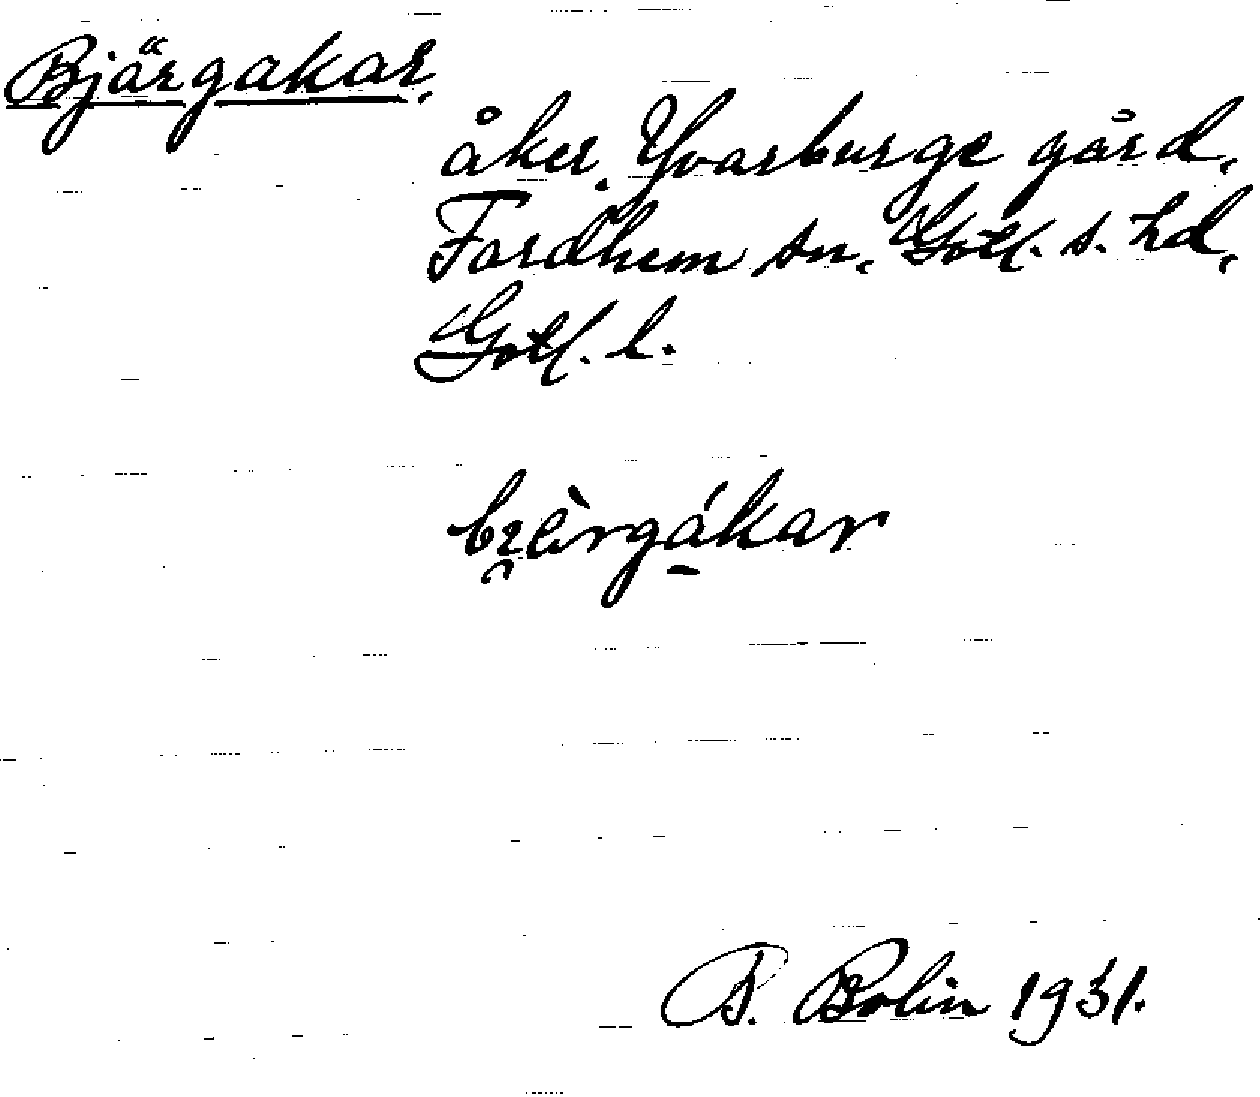 Bjärgakar,
åker. Yvarburge gård,
Fardhem sn. Gotl. s. hd,
Gotl. l.
P. Bolin 1931.